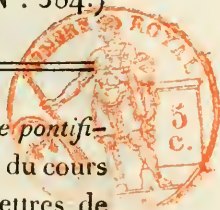 N°. 364.)
TIMBRE ROYAL
5
c.
e pontifi-
du cours
ettres de